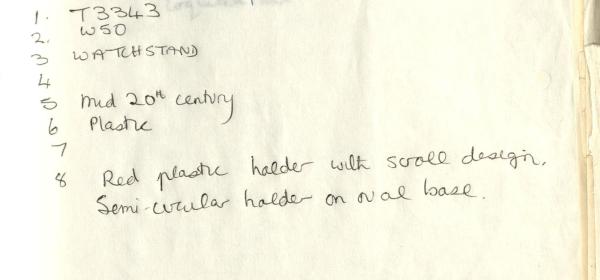 1. T3343
2. W50
3 WATCHSTAND
4
5 Mid 20th century
6 Plastic
7
8 Red plastic holder with scroll design.
Semi-circular holder on oval base.